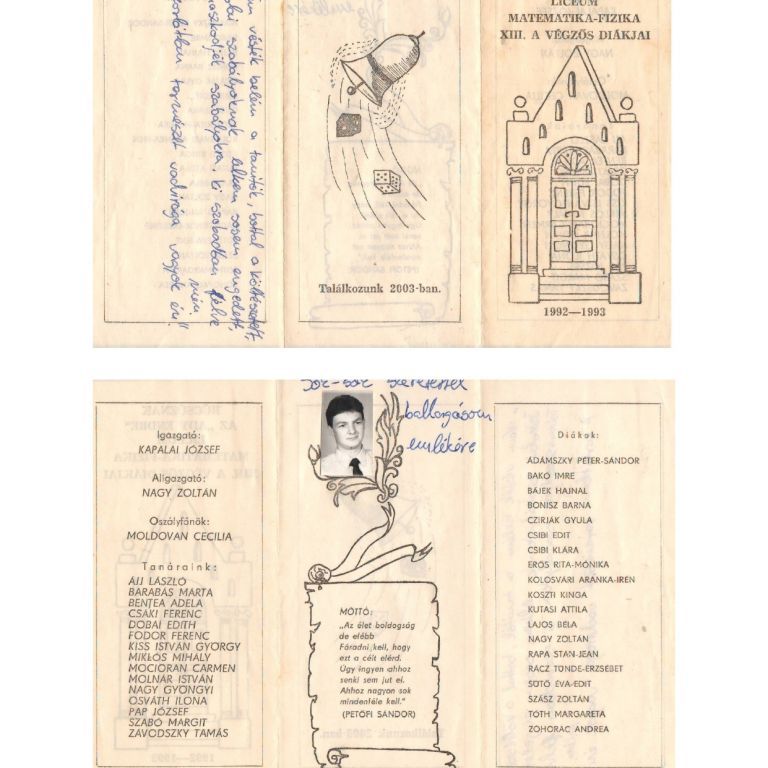 belém a tanítók, bottal a
szabályoknak lelkem sosem engedett,
szabályokra, ki szabadban félve
mén.
korlátban termesztett vadvirága vagyok én!"
emlékére
Találkozunk 2003-ban.
LICEUM
MATEMATIKA-FIZIKA
XIII. A VÉGZŐS DIÁKJAI
1992—1993
Igazgató:
KAPALAI JÓZSEF
Aligazgató:
NAGY ZOLTÁN
Oszályfőnök:
MOLDOVÁN CECILIA
Tanáraink:
ÁJJ LÁSZLÓ
BARABÁS MÁRTA
BENTEA ADELA
CSÁKI FERENC
DOBAI EDITH
FODOR FERENC
KISS ISTVÁN GYÖRGY
MIKLÓS MIHÁLY
MOCIORAN CARMEN
MOLNÁR ISTVÁN
NAGY GYÖNGYI
OSVÁTH ILONA
PAP JÓZSEF
SZABÓ MARGIT
ZÁVODSZKY TAMÁS
Sok-sok szeretettel
ballagásom
emlékére
MOTTÓ:
"Az élet boldogság
de elébb
Fáradni kell, hogy
ezt a célt elérd.
Úgy ingyen ahhoz
senki sem jut el.
Ahhoz nagyon sok
mindenféle kell."
(PETŐFI SÁNDOR)
Diákok:
ÁDÁMSZKY PÉTER-SÁNDOR
BAKÓ IMRE
BÁJEK HAJNAL
BONISZ BARNA
CZIRJÁK GYULA
CSIBI EDIT
CSIBI KLÁRA
ERŐS RITA-MÓNIKA
KOLOSVÁRI ARANKA-IRÉN
KOSZTI KINGA
KUTASI ATTILA
LAJOS BÉLA
NAGY ZOLTÁN
RAPA STAN-JEAN
RÁCZ TÜNDE-ERZSÉBET
SÜTŐ ÉVA-EDIT
SZÁSZ ZOLTÁN
TÓTH MARGARETA
ZOHORAC ANDREA